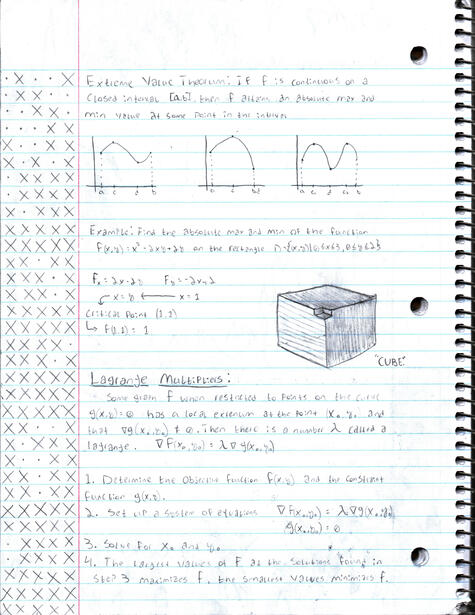 Extreme Value Theorem: If f is continuous on a
closed interval [a,b], then f attains an absolute max and
min value at some point in the interval
a c b
a c b
a c d c₁ b
Example: Find the absolute max and min of the function
f(x,y) = x² - 2xy + 2y on the rectangle D = {(x,y)|0≤x≤3, 0≤y≤2}
Fx = 2x-2y Fy = -2x+2
x = y ← x = 1
Critical Point (1,1)
↳ F(1,1) = 1
"CUBE"
Lagrange Multipliers:
Some graph f when restricted to points on the curve
g(x,y) = 0 has a local extremum at the point (x₀,y₀) and
that ∇g(x₀,y₀) ≠ 0. Then there is a number λ called a
lagrange. ∇F(x₀,y₀) = λ∇g(x₀,y₀)
1. Determine the objective function f(x,y) and the constraint
function g(x,y).
2. Set up a system of equations ∇F(x₀,y₀) = λ∇g(x₀,y₀)
g(x₀,y₀) = 0
3. Solve for x₀ and y₀
4. The largest values of f at the solutions found in
step 3 maximizes f, the smallest values minimizes f.